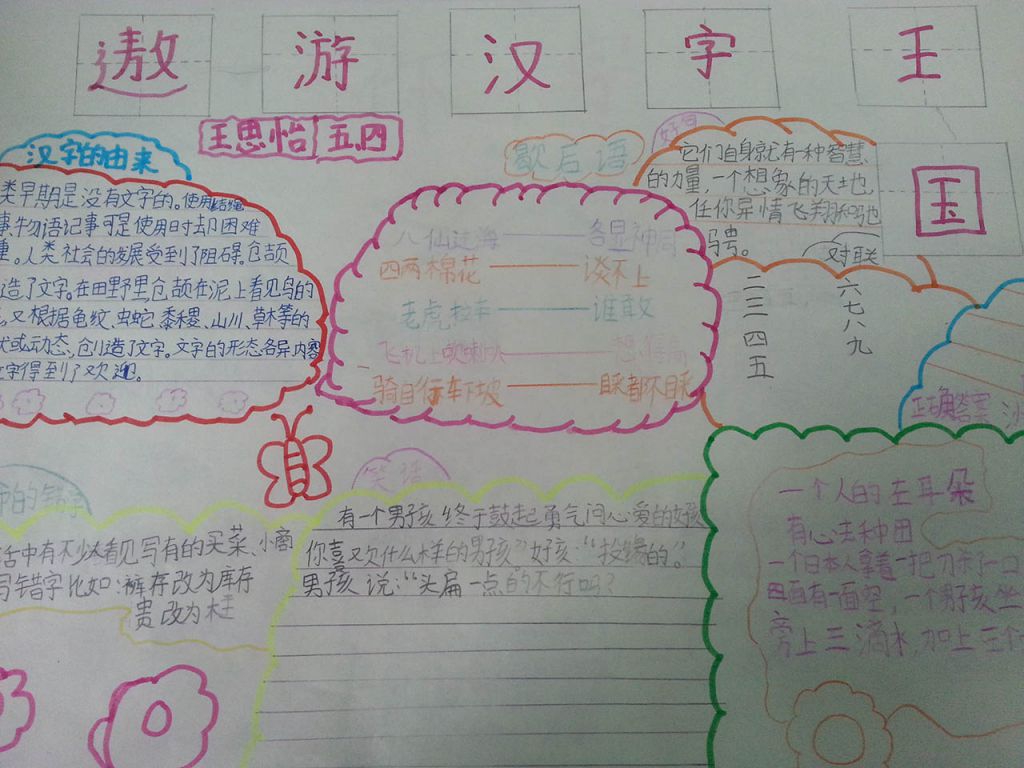 遨游汉字王
国
王思怡 五.四
汉字的由来
类早期是没有文字的。使用结绳
事、物语记事可是使用时却困难
重。人类社会的发展受到了阻碍。仓颉
造了文字。在田野里仓颉在泥上看见鸟的
又根据龟纹、虫蛇、黍稷、山川、草木等的
状或动态、创造了文字。文字的形态各异内容
字得到了欢迎。
歇后语
八仙过海——各显神司
四两棉花——谈不上
老虎拉车——谁敢
飞机上吹喇叭——想得高
骑自行车下坡——踩都不踩
好句
它们自身就有一种智慧
的力量,一个想象的天地,
任你异情飞翔和驰
骋。
对联
二三四五
六七八九
正确答案
的错字
活中有不少人看见写有的买菜、小商
写错字比如:裤存改为库存
贵改为柜
笑话
有一个男孩终于鼓起勇气问心爱的女孩
你喜欢什么样的男孩?女孩:“投缘的。”
男孩说:“头扁一点的不行吗?
一个人的左耳朵
有心去种田
一个日本人拿着一把刀杀了一口
四面有一面空,一个男孩坐
旁上三滴水,加上三个